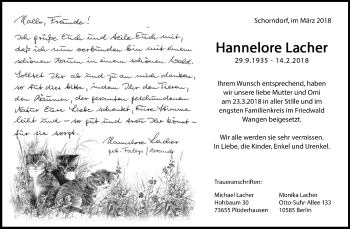 Hallo, Freunde!
Ich grüße Euch und teile Euch mit,
daß ich nun verbunden bin mit Euch
in einem schönen Wald.
Solltet Ihr auch mal danken wollen,
so tut dies bitte, indem Ihr den Tieren,
den Bäumen, der gesamten geschundenen
Natur Eure Liebe schenkt, Eure Stimme
leiht und so gut und treu Ihr könnt
Hannelore Lacher
Schorndorf, im März 2018
Hannelore Lacher
29.9.1935 - 14.2.2018
Ihrem Wunsch entsprechend, haben
wir unsere liebe Mutter und Omi
am 23.3.2018 in aller Stille und im
engsten Familienkreis im Friedwald
Wangen beigesetzt.
Wir werden sie sehr vermissen.
In Liebe, die Kinder, Enkel und Urenkel.
Traueranschriften:
Michael Lacher
Hohlbaum 30
73655 Plüderhausen
Monika Lacher
Otto-Suhr-Allee 133
10585 Berlin